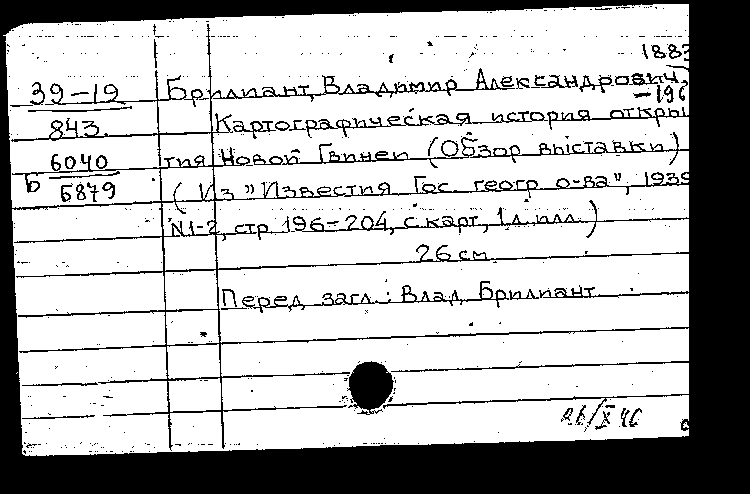 1883
39-19 Брилиант, Владимир Александрович,
-196
843. Картографическая история откры
Б 6040 тия Новой Гвинеи (Обзор выставки)
Б879 (Из "Известия Гос. геогр о-ва", 1939
N1-2, стр 196-204, с карт, 1 л. илл.)
26 см.
Перед загл.: Влад Брилиант
26/X 40